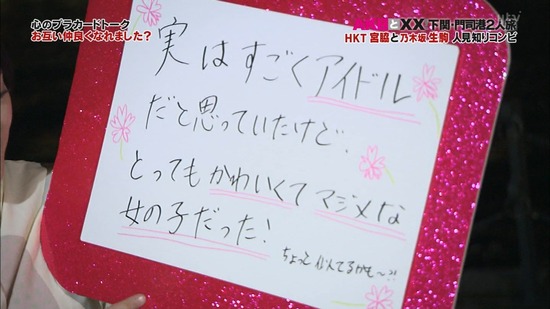 心のプラカードトーク
お互い仲良くなれました?
AKBとXX 下関・門司港2人旅
HKT 宮脇と乃木坂 生駒 人見知りコンビ
実はすごくアイドル
だと思っていたけど、
とってもかわいくてマジメな
女の子だった!
ちょっと似てるかも〜??